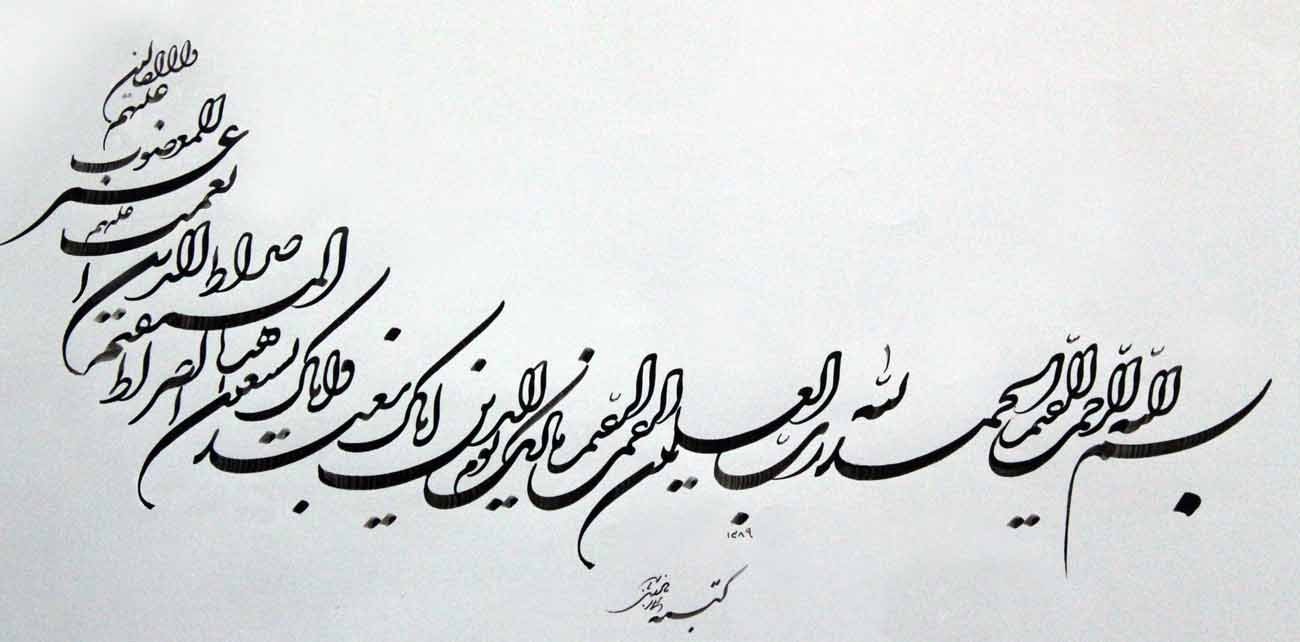 بسم الله الرحمن الرحیم الحمد لله رب العلمین الرحمن الرحیم مالک یوم الدین ایاک نعبد وایاک نستعین اهدنا الصراط المستقیم صراط الذین انعمت علیهم غیر المغضوب علیهم ولا الضالین
۱۳۸۹
کتبه